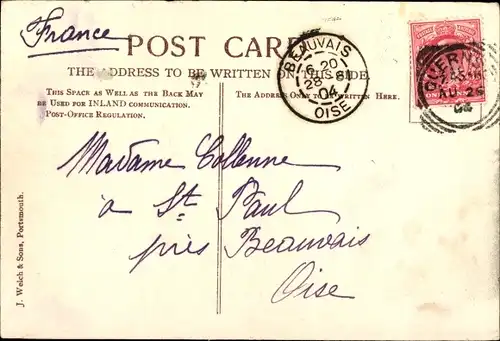 France
POST CARD
THE ADDRESS TO BE WRITTEN ON THIS SIDE.
THIS SPACE AS WELL AS THE BACK MAY
BE USED FOR INLAND COMMUNICATION.
POST-OFFICE REGULATION.
THE ADDRESS ONLY TO BE WRITTEN HERE.
BEAUVAIS
6-20
28 8
04
OISE
GUERN
AU 26
04
Madame Collenne
à St Paul
près Beauvais
Oise
J. Welch & Sons, Portsmouth.